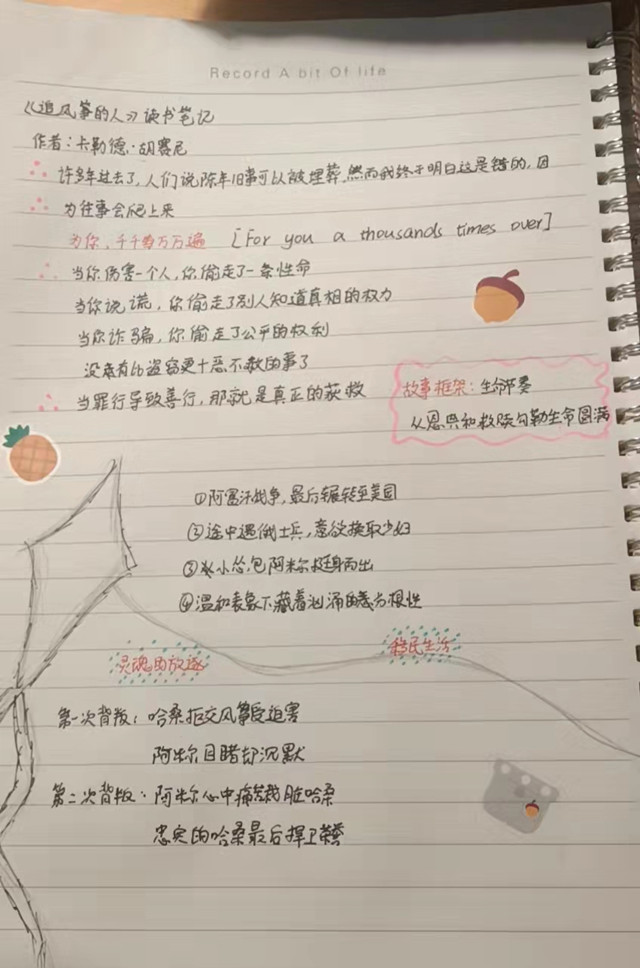 Record A bit Of life
《追风筝的人》读书笔记
作者：卡勒德·胡赛尼
许多年过去了，人们说陈年旧事可以被埋葬，然而我终于明白这是错的，因
为往事会爬上来
为你，千千万万遍 [For you a thousands times over]
当你伤害一个人，你偷走了一条性命
当你说谎，你偷走了别人知道真相的权力
当你诈骗，你偷走了公平的权利
没有比盗窃更十恶不赦的事了
当罪行导致善行，那就是真正的获救
故事框架：生命
从恩典和救赎勾勒生命圆满
①阿富汗战争，最后辗转至美国
②途中遇俄士兵，意欲换取少妇
③小怂包阿米尔挺身而出
④温和表象下藏着汹涌的劣根性
灵魂的放逐
移民生活
第一次背叛：哈桑拒交风筝受迫害
阿米尔目睹却沉默
第二次背叛：阿米尔心中痛苦栽脏哈桑
忠实的哈桑最后捍卫荣誉